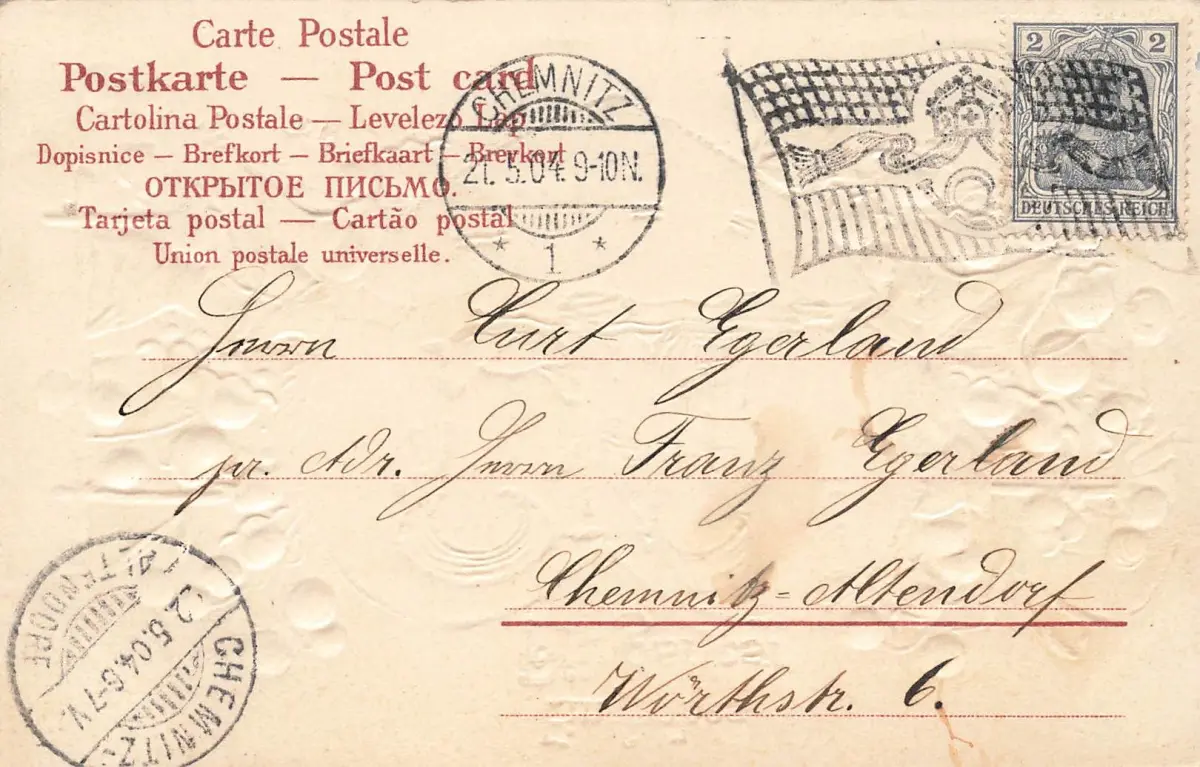 Carte Postale
Postkarte — Post card
Cartolina Postale — Levelező Lap
Dopisnice — Brefkort — Briefkaart — Brevkort
ОТКРЫТОЕ ПИСЬМО.
Tarjeta postal — Cartão postal
Union postale universelle.
CHEMNITZ
21.5.04. 9-10N.
* 1 *
2 2
DEUTSCHES REICH
Herrn Curt Egerland
pr. Adr. Herrn Franz Egerland
Chemnitz-Altendorf
Wörthstr. 6.
CHEMNITZ-
(ALTENDORF
22.5.04. 6-7 V.